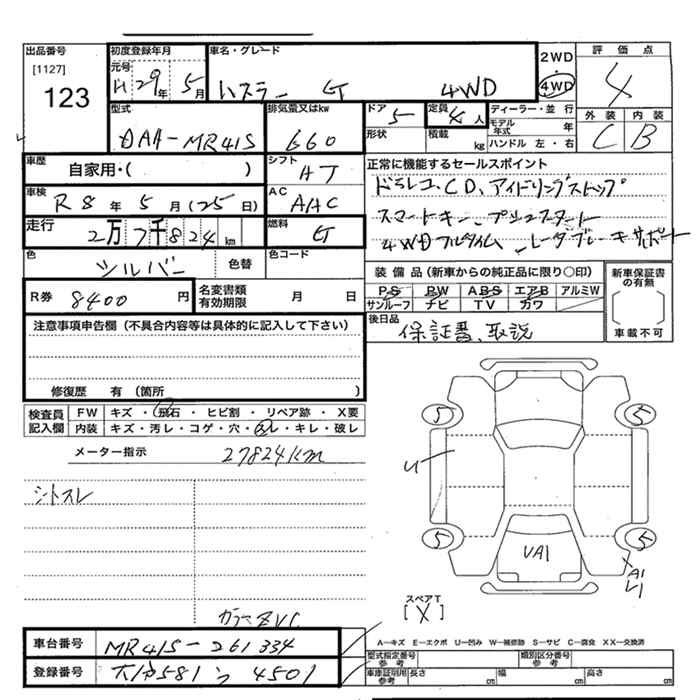 出品番号 初度登録年月 車名・グレード 2WD・4WD 評価点
[1127] 123
元号 H 29年 5月 ハスラー G 4WD 4
型式 DAA-MR41S 排気量又はkw 660 ドア 5 定員 4人 ディーラー・並行 外装 内装
形状 積載 kg モデル年式 年 C B
ハンドル 左・右
車歴 自家用・( ) シフト AT 正常に機能するセールスポイント
車検 R8年 5月(25日) AC AAC ドラレコ、CD、アイドリングストップ
走行 2万7千824km 燃料 G スマートキー、プッシュスタート
4WDフルタイム、レーダブレーキサポート
色 シルバー 色替 色コード
装備品(新車からの純正品に限り○印) 新車保証書の有無
R券 8400円 名変書類有効期限 月 日
PS PW ABS エアB アルミW
サンルーフ ナビ TV カワ
車載不可
後日品 保証書、取説
注意事項申告欄(不具合内容等は具体的に記入して下さい)
修復歴 有(箇所 )
検査員記入欄 FW キズ・飛石・ヒビ割・リペア跡・X要
内装 キズ・汚レ・コゲ・穴・スレ・キレ・破レ
メーター指示 27824km
シートスレ
5 5
U
5 5
UA1
A1
スペアT
[X]
A—キズ E—エクボ U—凹み W—補修跡 S—サビ C—腐食 XX—交換済
車台番号 MR41S-261334
型式指定番号 参考 類別区分番号 参考
登録番号 581 4501
車庫証明用 参考 長さ cm 幅 cm 高さ cm